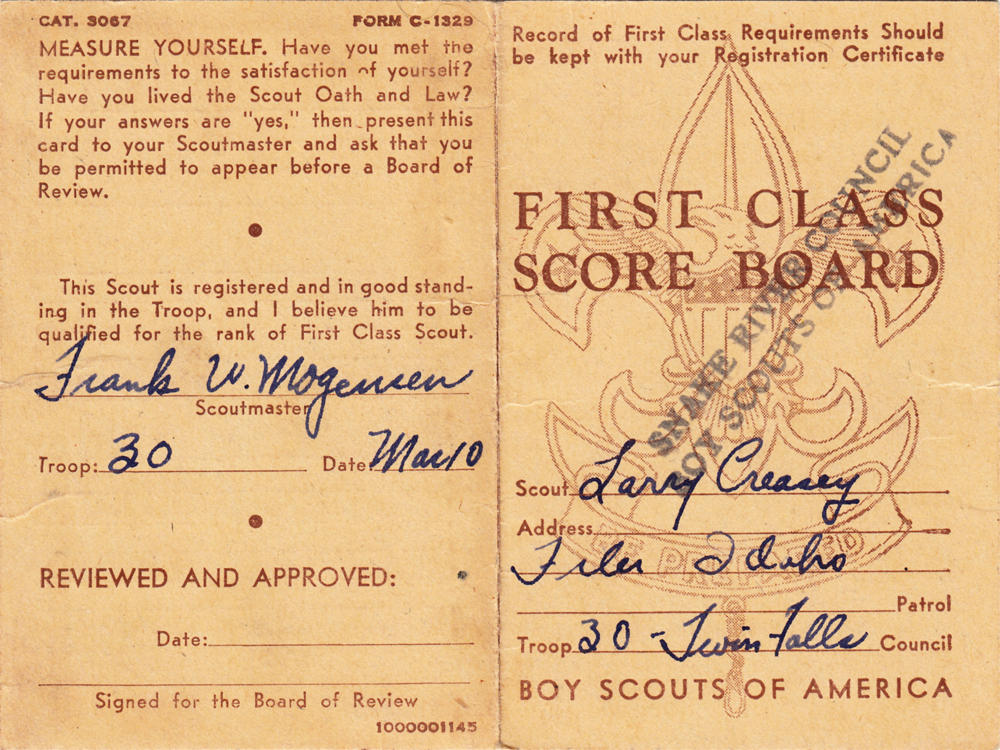 CAT. 3067
FORM C-1329
MEASURE YOURSELF. Have you met the
requirements to the satisfaction of yourself?
Have you lived the Scout Oath and Law?
If your answers are "yes," then present this
card to your Scoutmaster and ask that you
be permitted to appear before a Board of
Review.
This Scout is registered and in good stand-
ing in the Troop, and I believe him to be
qualified for the rank of First Class Scout.
Frank W. Mogensen
Scoutmaster
Troop: 30 Date: Mar 10
REVIEWED AND APPROVED:
Date:
Signed for the Board of Review
1000001145
Record of First Class Requirements Should
be kept with your Registration Certificate
FIRST CLASS
SCORE BOARD
SNAKE RIVER COUNCIL
BOY SCOUTS OF AMERICA
Scout Larry Creasey
Address
Filer Idaho
BE PREPARED
Patrol
Troop 30 - Twin Falls Council
BOY SCOUTS OF AMERICA